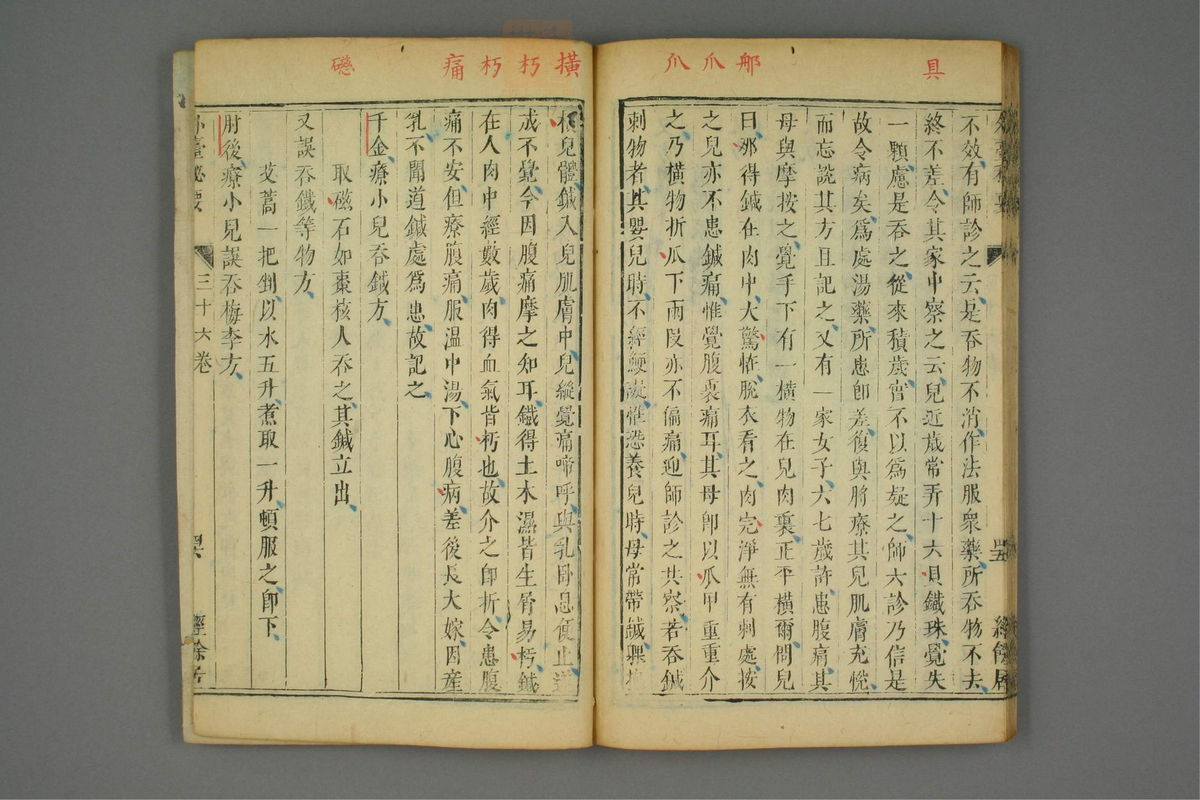 具
那
爪
爪
不效有師診之云是吞物不消作法服衆藥所吞物不去
終不差令其家中察之云兒近歲常弄十六貝鐵珠覺失
一顆慮是吞之從來積歲曾不以爲疑之師六診乃信是
故令病矣爲處湯藥所患卽差復與將療其兒肌膚充悅
而忘説其方且記之又有一家女子六七歲許患腹痛其
母與摩按之覺手下有一橫物在兒肉裏正平橫爾問兒
曰那得鍼在肉中大驚怍脫衣看之肉完淨無有刺處按
之兒亦不患鍼痛惟覺腹裏痛耳其母卽以爪甲重重介
之乃橫物折爪下兩段亦不偏痛迎師診之共察若吞鍼
刺物者其嬰兒時不經鯁礙惟恐養兒時母常帶鍼
橫
朽
朽
痛
礠
兒體鍼入兒肌膚中兒縱覺痛啼呼與乳臥息便止遂
成不覺今因腹痛摩之知耳鐵得土木濕皆生脊易朽鍼
在人肉中經數歲肉得血氣皆朽也故介之卽折令患腹
痛不安但療腹痛服溫中湯下心腹病差後長大嫁因産
乳不聞道鍼處爲患故記之
千金療小兒吞鍼方
取磁石如棗核人吞之其鍼立出
又誤吞鐵等物方
艾蒿一把剉以水五升煮取一升頓服之卽下
肘後療小兒誤吞梅李方
外臺秘要 三十六卷 四六 經餘居